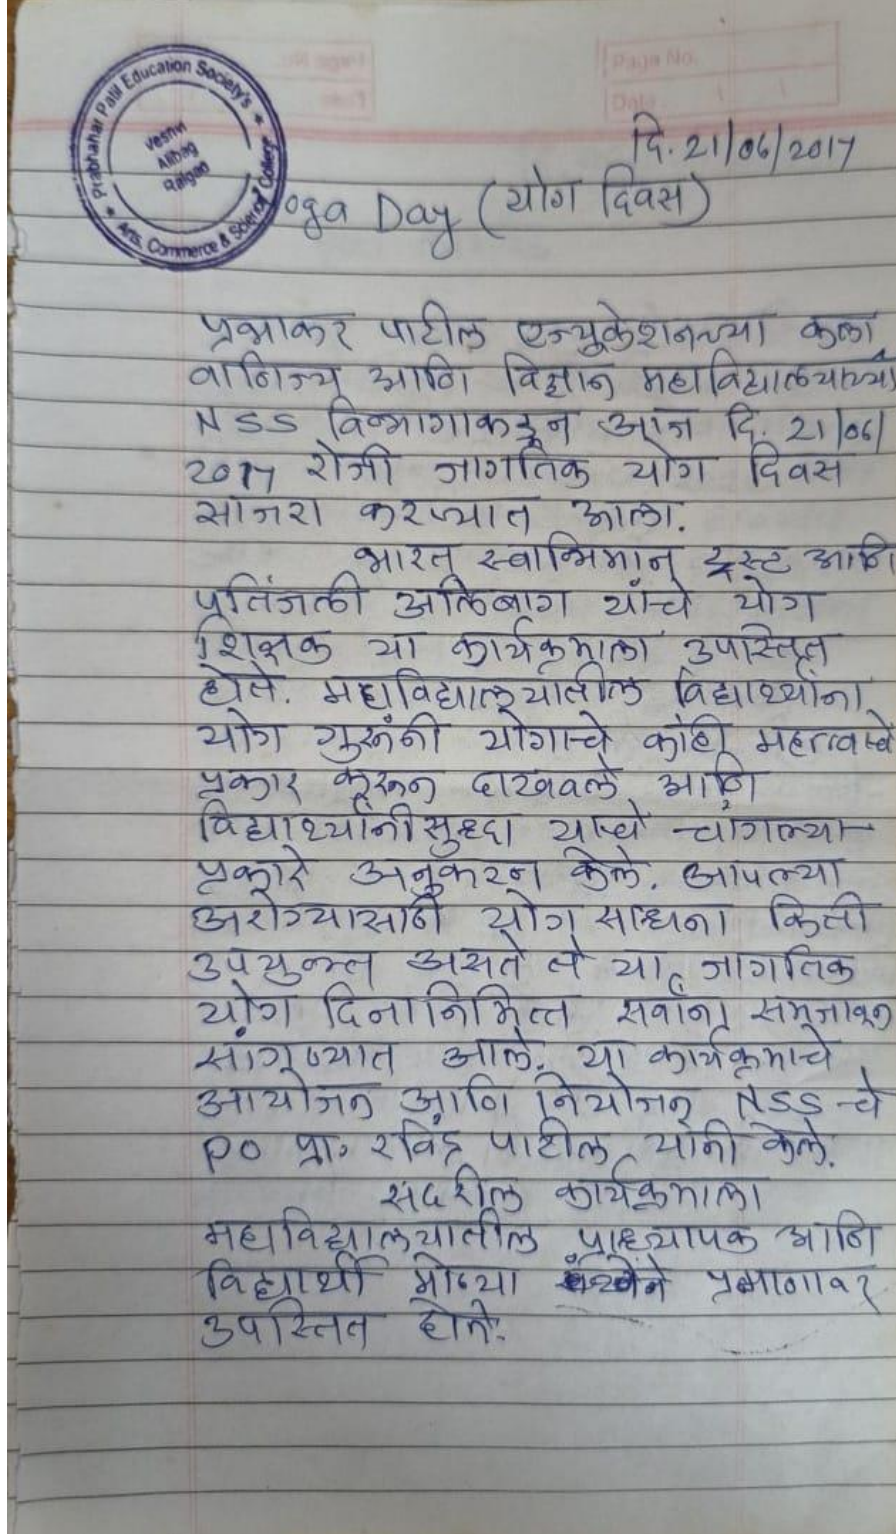 Page No.
Date
Prabhahar Patil Education Society's
Arts, Commerce & Science College
Veshvi
Alibag
Raigad
दि. 21/06/2017
oga Day (योग दिवस)
प्रभाकर पाटील एज्युकेशनच्या कला,
वाणिज्य आणि विज्ञान महाविद्यालयाच्या
NSS विभागाकडून आज दि. 21/06/
2017 रोजी जागतिक योग दिवस
साजरा करण्यात आला.
भारत स्वाभिमान ट्रस्ट आनि
पतिंजली अलिबाग यांचे योग
शिक्षक या कार्यक्रमाला उपस्तित
होते. महाविद्यालयातील विद्यार्थ्यांना
योग गुरूंनी योगाचे कांही महत्वाचे
प्रकार करून दाखवले आणि
विद्यार्थ्यांनीसुद्धा याचे चांगल्या
प्रकारे अनुकरन केले. आपल्या
अरोग्यासाठी योग साधना किती
उपयुक्त असते ते या जागतिक
योग दिनानिमित्त सर्वांना समजावून
सांगण्यात आले. या कार्यक्रमाचे
आयोजन आणि नियोजन NSS चे
PO प्रा. रविंद्र पाटील यांनी केले.
सदरील कार्यक्रमाला
महाविद्यालयातील प्राध्यापक आनि
विद्यार्थी मोठ्या प्रमाणावर
उपस्तित होते.